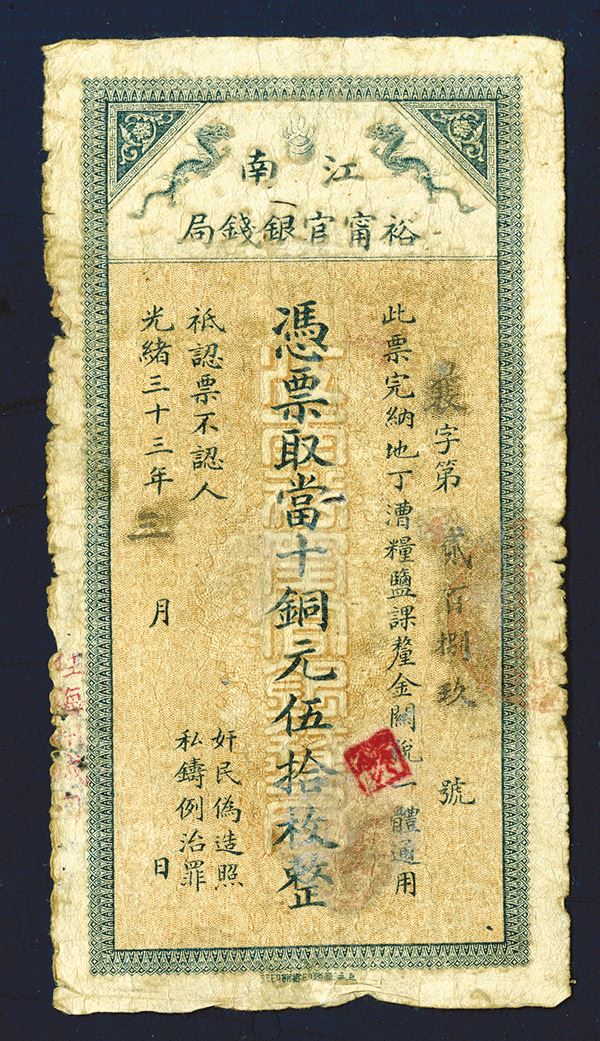 江南
裕甯官銀錢局
字第貳百捌玖號
此票完納地丁漕糧鹽課釐金關稅一體通用
憑票取當十銅元伍拾枚整
祇認票不認人
光緒三十三年三月日
奸民偽造照
私鑄例治罪